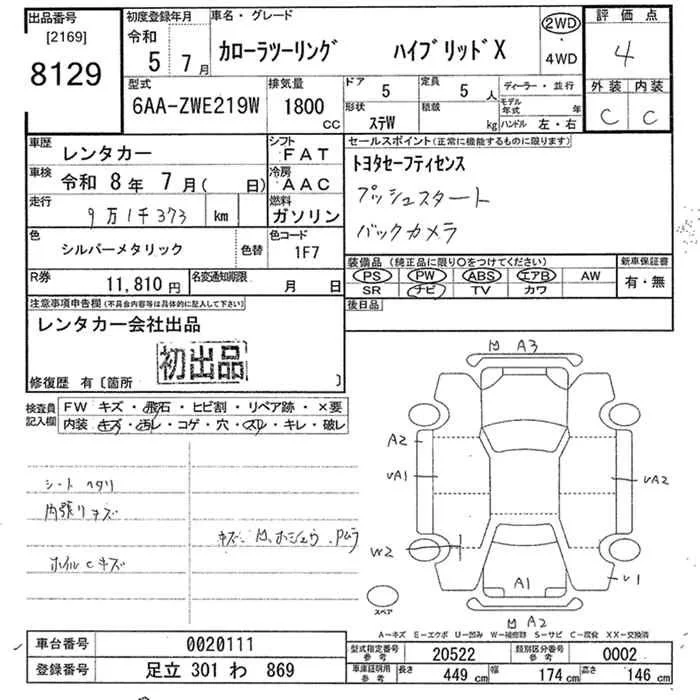 出品番号
[2169]
8129
初度登録年月
令和
5 7月
車名・グレード
カローラツーリング ハイブリッドX
2WD
・
4WD
評価点
4
外装 内装
C C
型式
6AA-ZWE219W
排気量
1800
CC
ドア 5
定員 5 人
ディーラー・並行
形状 ステW
積載 kg
モデル年式 年
ハンドル 左・右
車歴 レンタカー
シフト FAT
車検 令和 8年 7月( 日)
冷房 AAC
走行 9万1千373 km
燃料 ガソリン
色 シルバーメタリック 色替
色コード 1F7
R券 11,810円
名変通知期限 月 日
セールスポイント(正常に機能するものに限ります)
トヨタセーフティセンス
プッシュスタート
バックカメラ
装備品(純正品に限り○をつけてください)
PS PW ABS エアB AW
SR ナビ TV カワ
新車保証書
有・無
後日品
注意事項申告欄(不具合内容等は具体的に記入して下さい)
レンタカー会社出品
初出品
修復歴 有〔箇所 〕
検査員記入欄
FW キズ・飛石・ヒビ割・リペア跡・×要
内装 キズ・汚レ・コゲ・穴・スレ・キレ・破レ
シートヘタリ
内張リキズ
ホイルCキズ
A3
A2
VA1
VA2
W2
A1
V1
A2
スペア
A-キズ E-エクボ U-凹み W-補修跡 S-サビ C-腐食 XX-交換済
車台番号 0020111
登録番号 足立 301 わ 869
型式指定番号 参考 20522
類別区分番号 参考 0002
車庫証明用 参考 長さ 449 cm 幅 174 cm 高さ 146 cm